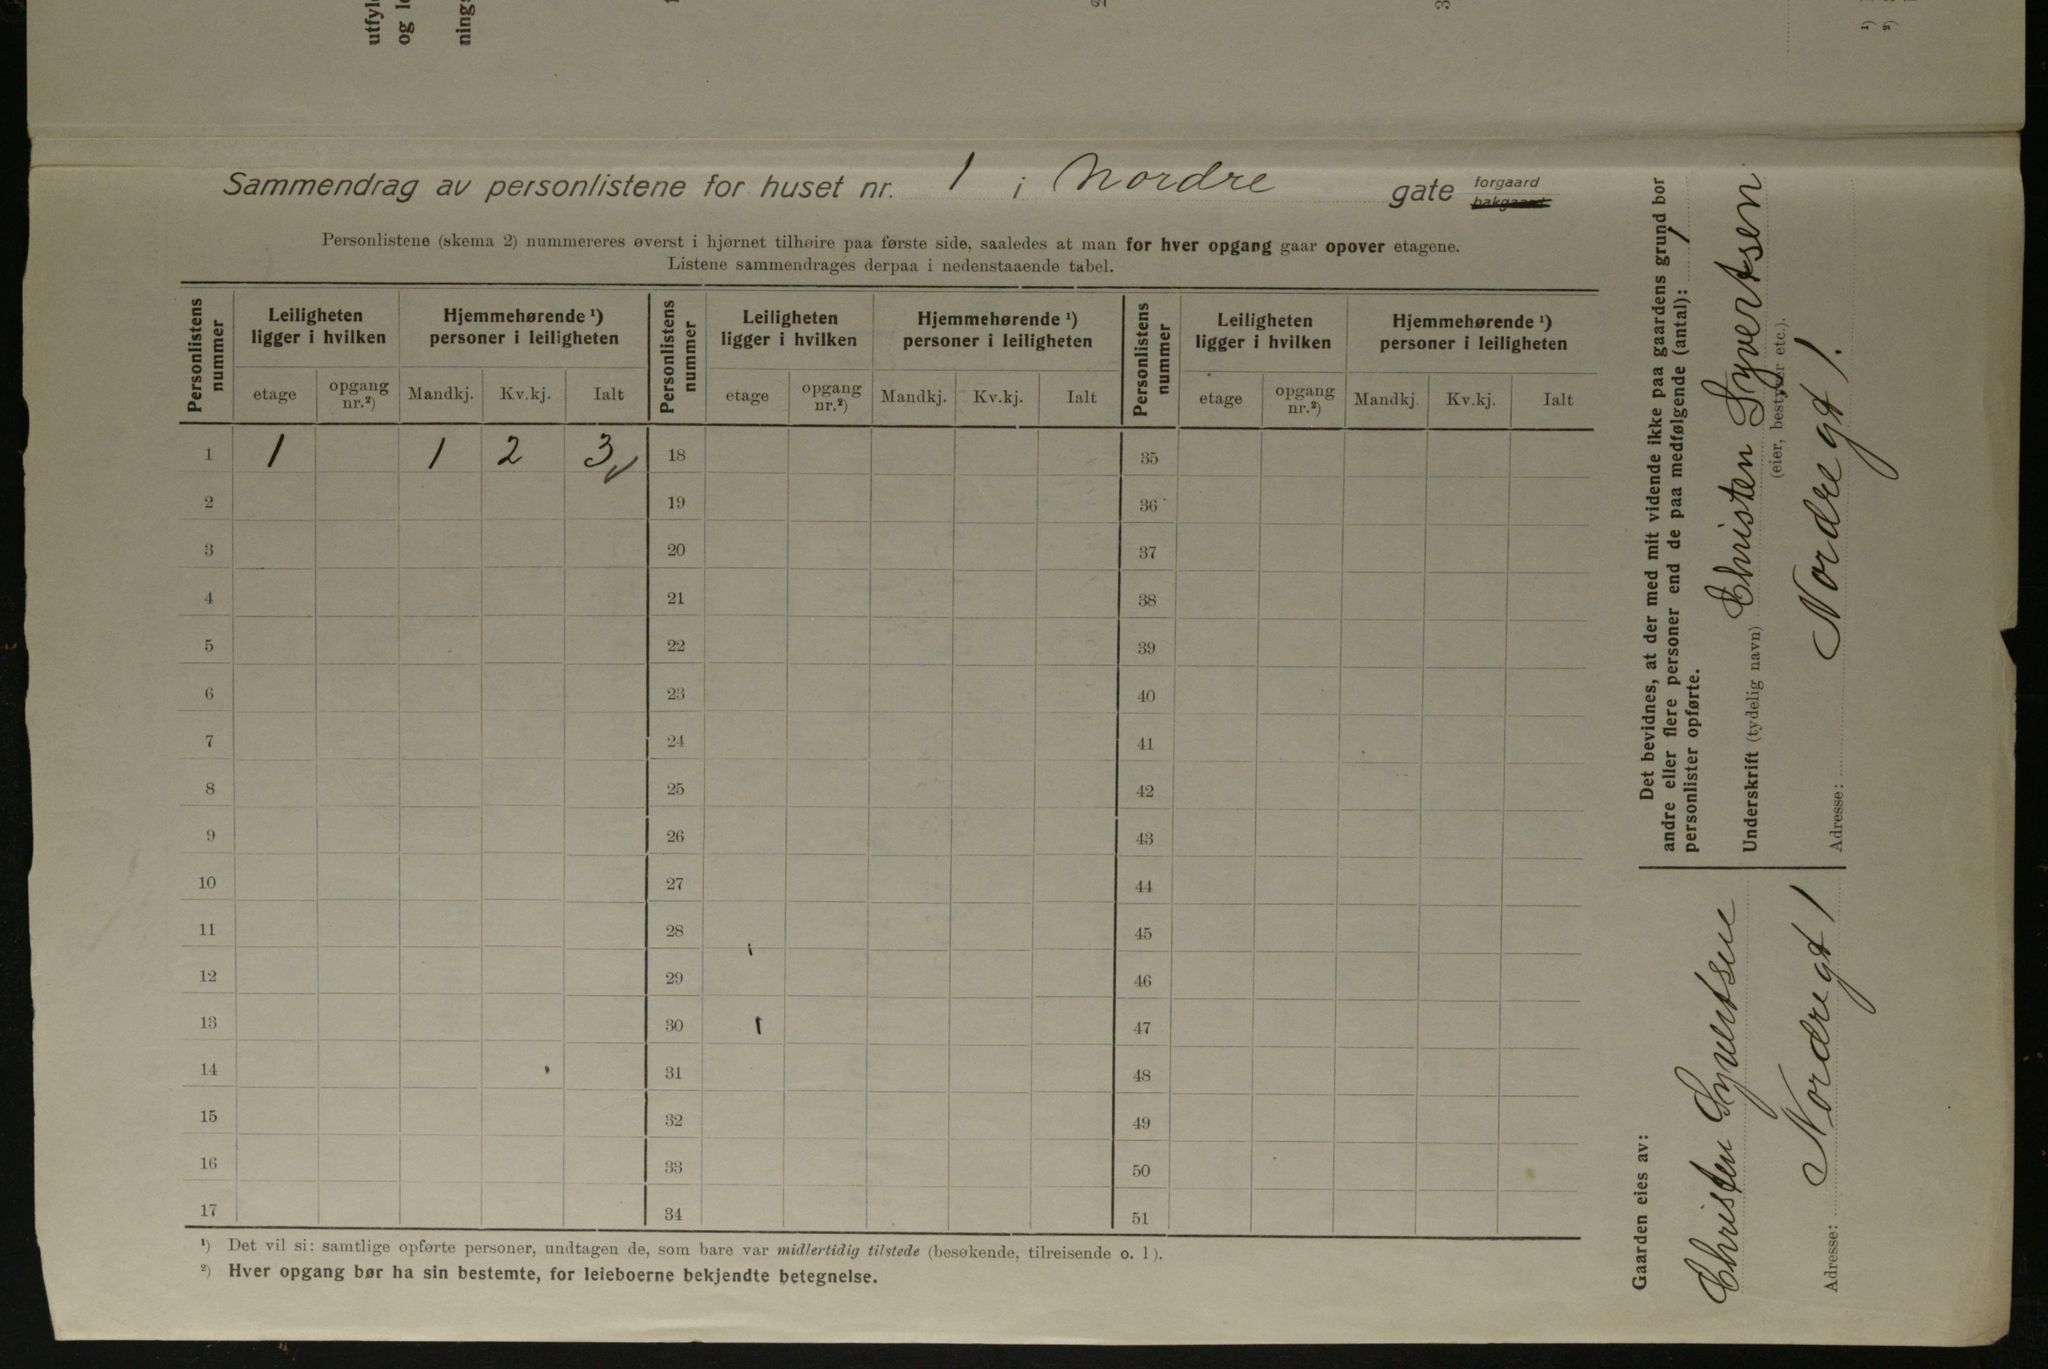 utfyl
og le
nings
1
2
3
¹)
²)
Sammendrag av personlistene for huset nr. 1 i Nordre gate forgaard
bakgaard
Personlistene (skema 2) nummereres øverst i hjørnet tilhøire paa første side, saaledes at man for hver opgang gaar opover etagene.
Listene sammendrages derpaa i nedenstaaende tabel.
Personlistens nummer Leiligheten ligger i hvilken Hjemmehørende ¹) personer i leiligheten Personlistens nummer Leiligheten ligger i hvilken Hjemmehørende ¹) personer i leiligheten Personlistens nummer Leiligheten ligger i hvilken Hjemmehørende ¹) personer i leiligheten
etage opgang nr.²) Mandkj. Kv.kj. Ialt etage opgang nr.²) Mandkj. Kv.kj. Ialt etage opgang nr.²) Mandkj. Kv.kj. Ialt
1 1 1 2 3 18 35
2 19 36
3 20 37
4 21 38
5 22 39
6 23 40
7 24 41
8 25 42
9 26 43
10 27 44
11 28 45
12 29 46
13 30 47
14 31 48
15 32 49
16 33 50
17 34 51
¹) Det vil si: samtlige opførte personer, undtagen de, som bare var midlertidig tilstede (besøkende, tilreisende o. l).
²) Hver opgang bør ha sin bestemte, for leieboerne bekjendte betegnelse.
Det bevidnes, at der med mit vidende ikke paa gaardens grund bor
andre eller flere personer end de paa medfølgende (antal): 1
personlister opførte.
Underskrift (tydelig navn) Christen Syvertsen
(eier, bestyrer etc.).
Adresse: Nordregt 1.
Gaarden eies av:
Christen Syvertsen
Adresse: Nordregt 1